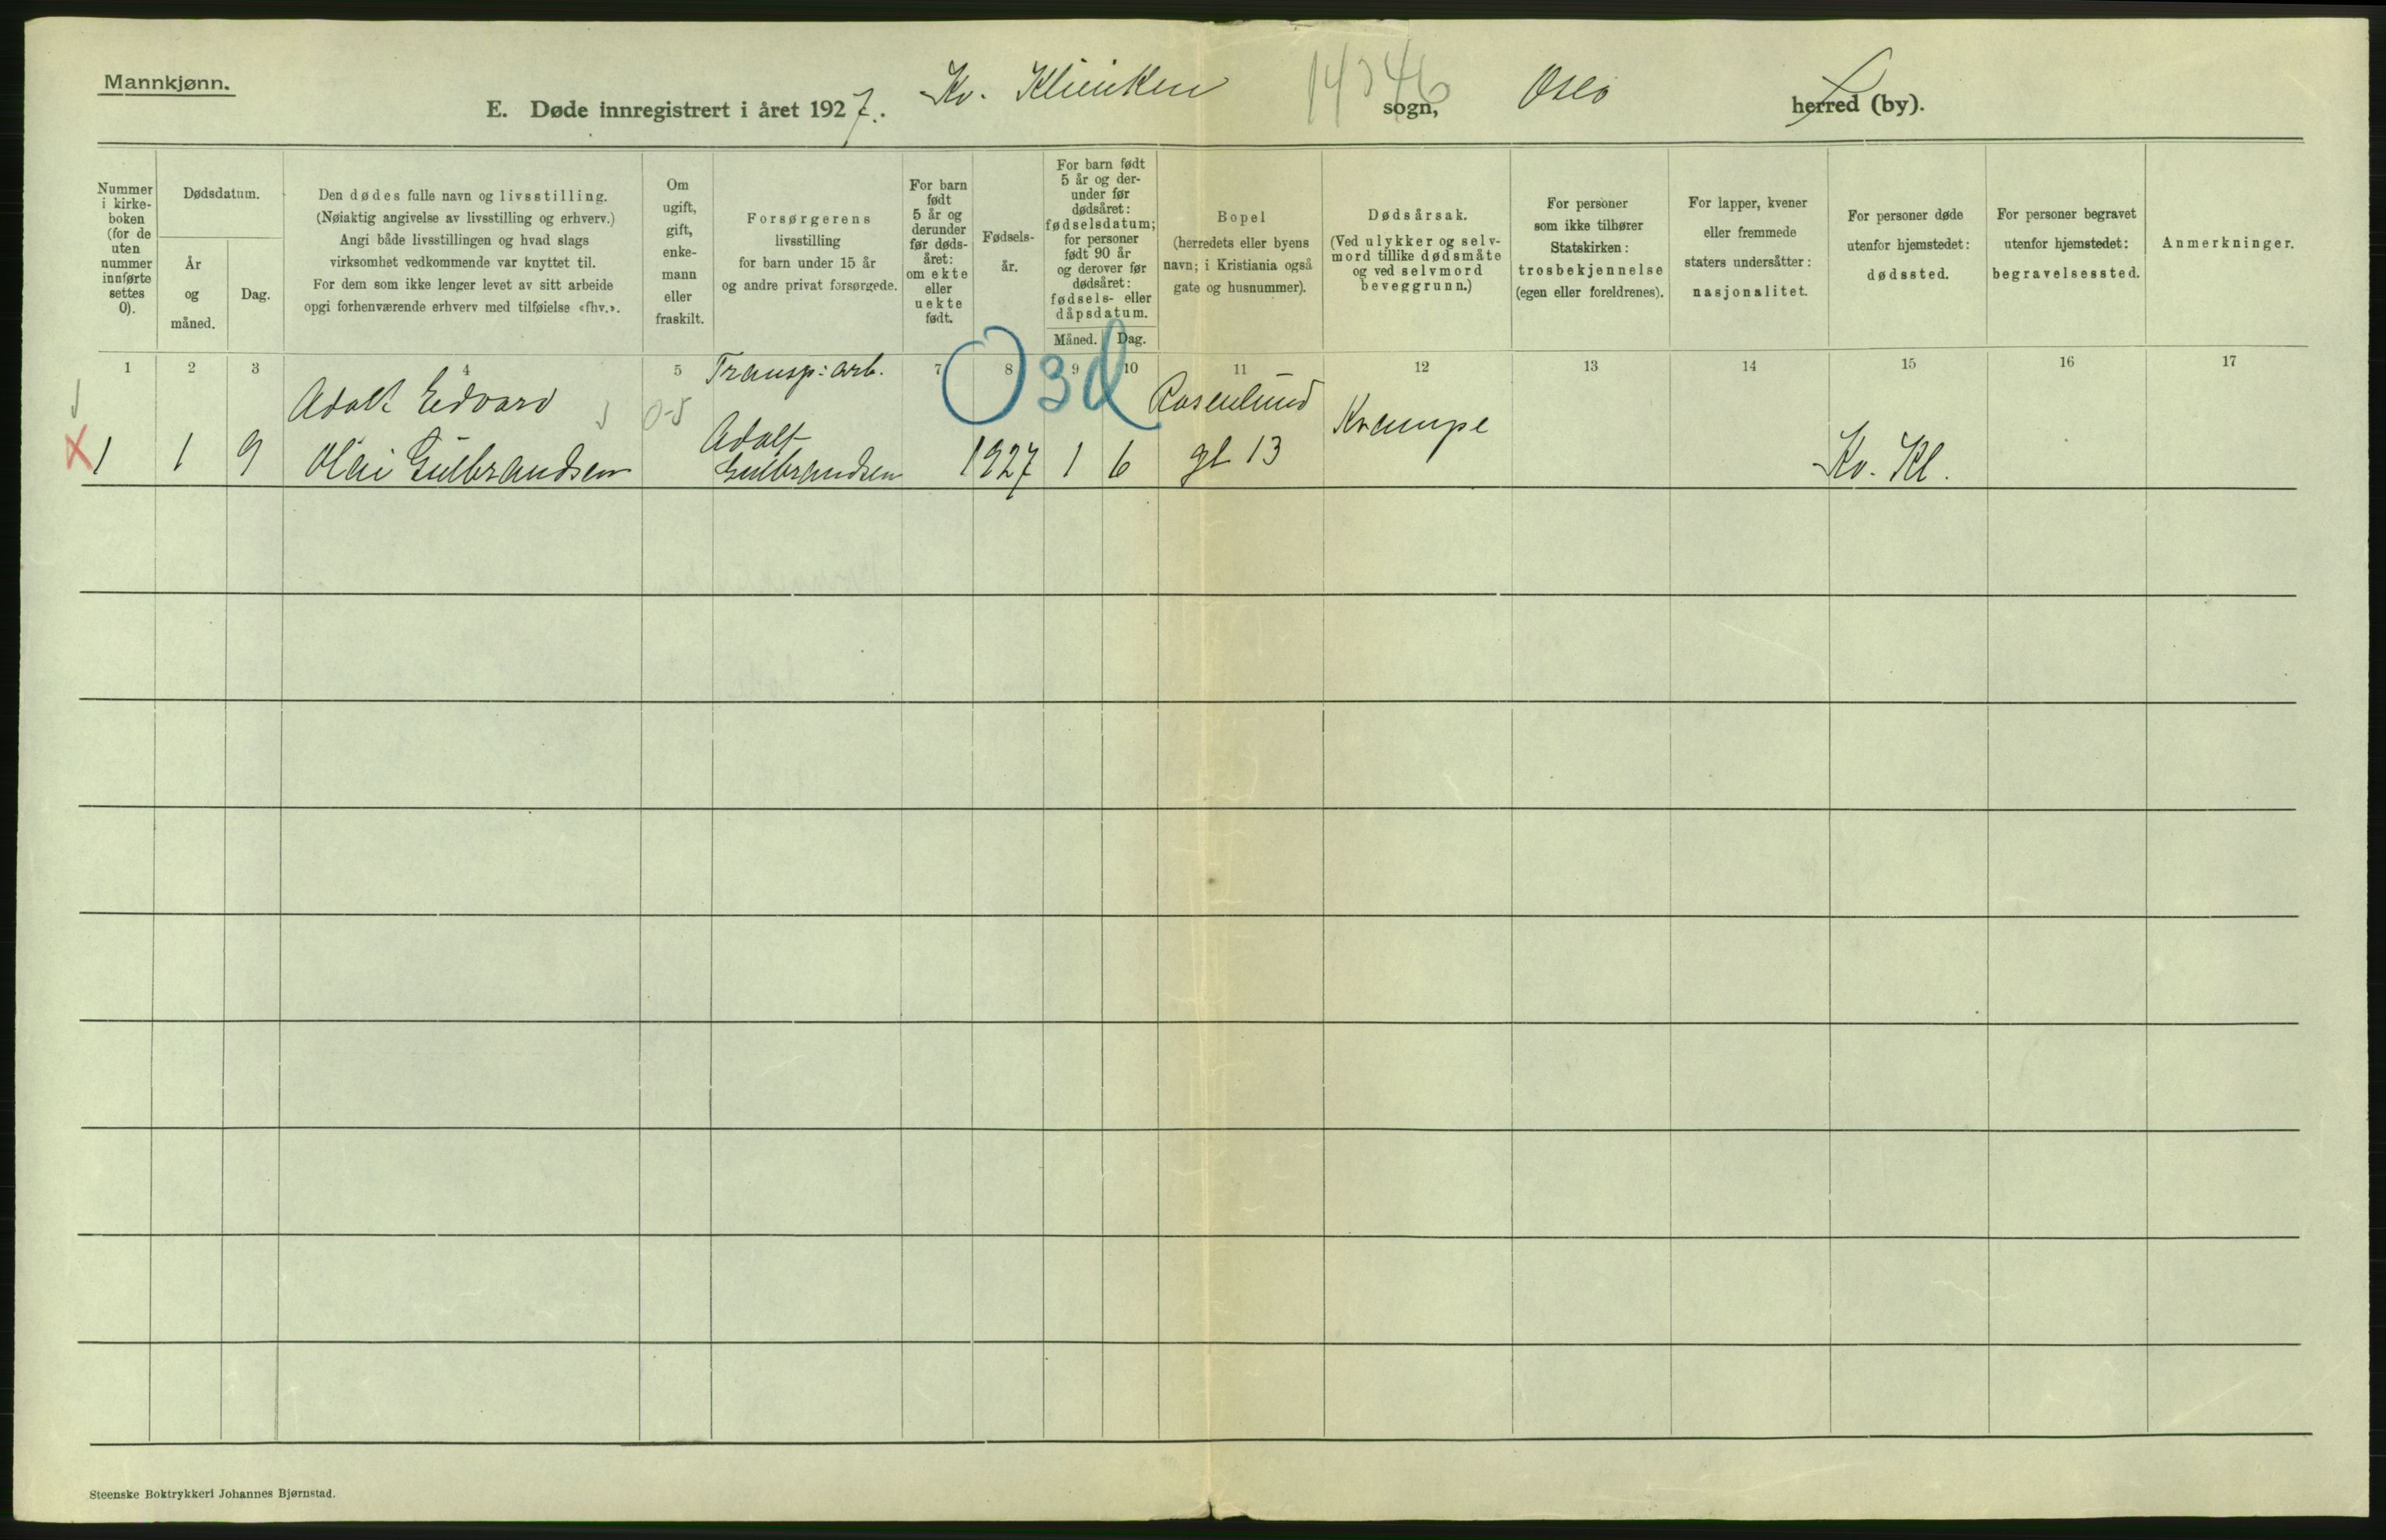 Mannkjønn.
E. Døde innregistrert i året 1927. Kv. Klinikken sogn, Oslo herred (by).
14346
Nummer
i kirke-
boken
(for de
uten
nummer
innførte
settes
0).
Dødsdatum.
År
og
måned.
Dag.
Den dødes fulle navn og livsstilling.
(Nøiaktig angivelse av livsstilling og erhverv.)
Angi både livsstillingen og hvad slags
virksomhet vedkommende var knyttet til.
For dem som ikke lenger levet av sitt arbeide
opgi forhenværende erhverv med tilføielse «fhv.».
Om
ugift,
gift,
enke-
mann
eller
fraskilt.
Forsørgerens
livsstilling
for barn under 15 år
og andre privat forsørgede.
For barn
født
5 år og
derunder
før døds-
året:
om ekte
eller
uekte
født.
Fødsels-
år.
For barn født
5 år og der-
under før
dødsåret:
fødselsdatum;
for personer
født 90 år
og derover før
dødsåret:
fødsels- eller
dåpsdatum.
Måned. Dag.
Bopel
(herredets eller byens
navn; i Kristiania også
gate og husnummer).
Dødsårsak.
(Ved ulykker og selv-
mord tillike dødsmåte
og ved selvmord
beveggrunn.)
For personer
som ikke tilhører
Statskirken:
trosbekjennelse
(egen eller foreldrenes).
For lapper, kvener
eller fremmede
staters undersåtter:
nasjonalitet.
For personer døde
utenfor hjemstedet:
dødssted.
For personer begravet
utenfor hjemstedet:
begravelsessted.
Anmerkninger.
1 2 3 4 5 7 8 9 10 11 12 13 14 15 16 17
X 1 1 9
Adolf Edvard
Olai Gulbrandsen
0-5
Transp: arb.
Adolf
Gulbrandsen
1927 1 6
Rosenlund
gt 13
Krampe
Kv. Kl.
Steenske Boktrykkeri Johannes Bjørnstad.